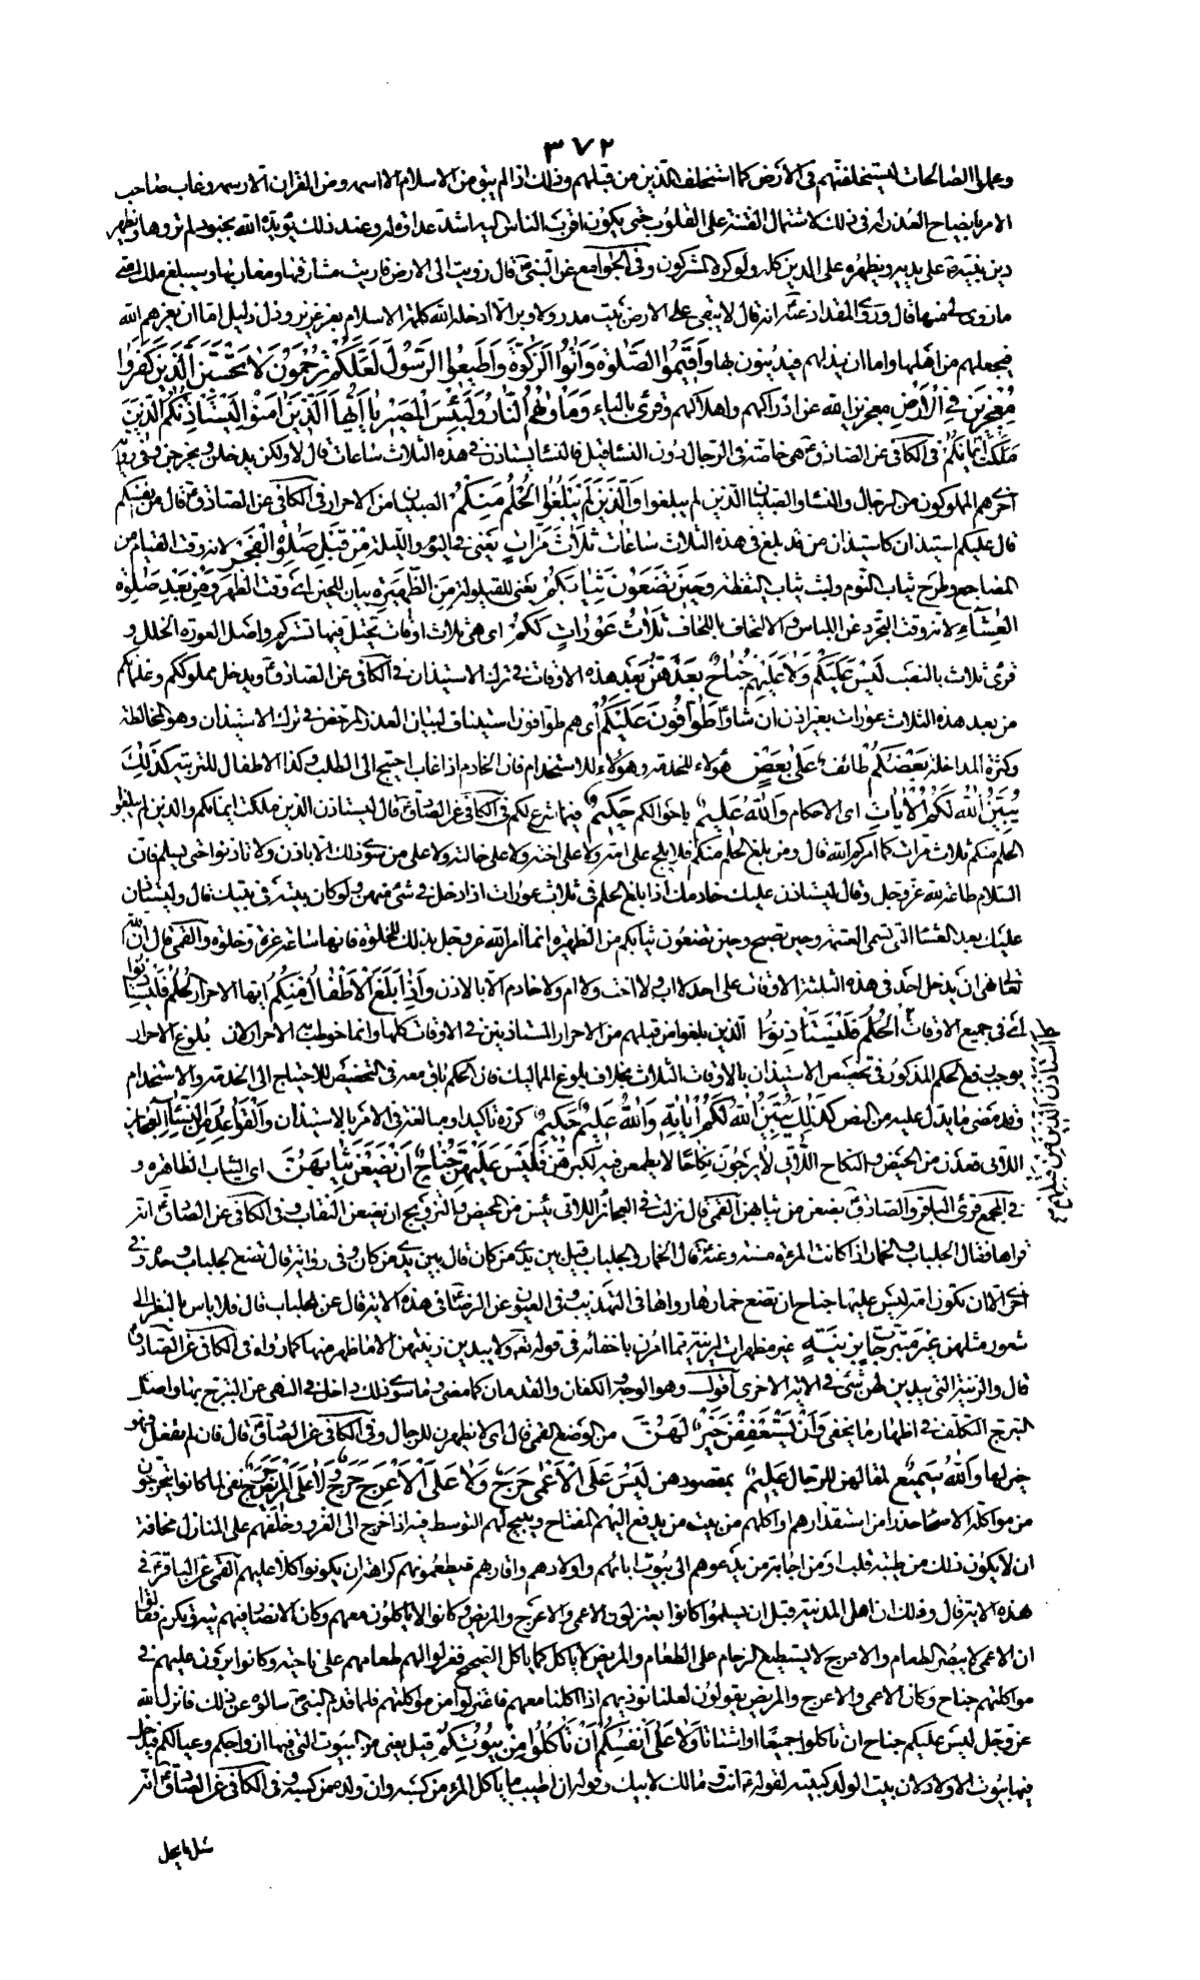 ٣٧٢
وعملوا الصالحات ليستخلفنهم فى الارض كما استخلف الذين من قبلهم وذلك اذا لم يبق من الاسلام الا اسمه ومن القران الا رسمه وغاب صاحب
الامر بايضاح العذر له فى ذلك لاشتمال الفتنة على القلوب حتى يكون اقرب الناس اليه اشد عداوة له وعند ذلك يؤيده الله بجنود لم تروها ويظهر
دين نبيه على يديه ويظهره على الدين كله ولو كره المشركون وفى الجوامع عن النبى ص قال زويت الى الارض فاريت مشارقها ومغاربها وسيبلغ ملك امتى
ما زوى لى منها قال وروى المقداد عنه انه قال لا يبقى على الارض بيت مدر ولا وبر الا ادخله الله كلمة الاسلام بعز عزيز وذل ذليل اما ان يعزهم الله
فيجعلهم من اهلها واما ان يذلهم فيدينون بها وَاَقِيمُوا الصَّلٰوةَ وَاٰتُوا الزَّكٰوةَ وَاَطِيعُوا الرَّسُولَ لَعَلَّكُمْ تُرْحَمُونَ لَا تَحْسَبَنَّ الَّذِينَ كَفَرُوا
مُعْجِزِينَ فِى الْاَرْضِ معجزين الله عن ادراكهم واهلاكهم وقرئ بالياء وَمَاْوٰيهُمُ النَّارُ وَلَبِئْسَ الْمَصِيرُ يَا اَيُّهَا الَّذِينَ اٰمَنُوا لِيَسْتَاْذِنْكُمُ الَّذِينَ
مَلَكَتْ اَيْمَانُكُمْ فى الكافى عن الصادق ع هى خاصة فى الرجال دون النساء قيل فالنساء يستاذن فى هذه الثلاث ساعات قال لا ولكن يدخلن ويخرجن وفى رواية
اخرى هم المملوكون من الرجال والنساء والصبيان الذين لم يبلغوا وَالَّذِينَ لَمْ يَبْلُغُوا الْحُلُمَ مِنْكُمْ الصبيان من الاحرار فى الكافى عن الصادق ع قال من انفسكم
قال عليكم استيذان كاستيذان من قد بلغ فى هذه الثلاث ساعات ثَلَاثَ مَرَّاتٍ يعنى فى اليوم والليلة مِنْ قَبْلِ صَلٰوةِ الْفَجْرِ لانه وقت القيام من
المضاجع وطرح ثياب النوم ولبس ثياب اليقظة وَحِينَ تَضَعُونَ ثِيَابَكُمْ يعنى للقيلولة مِنَ الظَّهِيرَةِ بيان للحين اى وقت الظهر وَمِنْ بَعْدِ صَلٰوةِ
الْعِشَآءِ لانه وقت التجرد عن اللباس والالتحاف باللحاف ثَلَاثُ عَوْرَاتٍ لَكُمْ اى هى ثلاث اوقات تختل فيها تستركم واصل العورة الخلل و
قرئ ثلاث بالنصب لَيْسَ عَلَيْكُمْ وَلَا عَلَيْهِمْ جُنَاحٌ بَعْدَهُنَّ بعد هذه الاوقات فى ترك الاستيذان فى الكافى عن الصادق ع ويدخل مملوككم وغلمانكم
من بعد هذه الثلاث عورات بغير اذن ان شاؤا طَوَّافُونَ عَلَيْكُمْ اى هم طوافون استيناف لبيان العذر المرخص فى ترك الاستيذان وهو المخالطة
وكثرة المداخلة بَعْضُكُمْ طائف عَلٰى بَعْضٍ هؤلاء للخدمة وهؤلاء للاستخدام فان الخادم اذا غاب احتيج الى الطلب وكذا الاطفال للتربية كَذٰلِكَ
يُبَيِّنُ اللهُ لَكُمُ الْاٰيَاتِ اى الاحكام وَاللهُ عَلِيمٌ باحوالكم حَكِيمٌ فيما شرع لكم فى الكافى عن الصادق ع قال ليستاذن الذين ملكت ايمانكم والذين لم يبلغوا
الحلم منكم ثلاث مرات كما امركم الله قال ومن بلغ الحلم منكم فلا يلج على امه ولا على اخته ولا على خالته ولا على من سوى ذلك الا باذن ولا تاذنوا حتى يسلم فان
السلام طاعة لله عز وجل وقال ليستاذن عليك خادمك اذا بلغ الحلم فى ثلاث عورات اذا دخل فى شئ منهن ولو كان بيته فى بيتك قال وليستاذن
عليك بعد العشاء التى تسمى العتمة وحين تصبح وحين تضعون ثيابكم من الظهيرة انما امر الله عز وجل بذلك للخلوة فانها ساعة غرة وخلوة والقمى قال ان الله
تعالى نهى ان يدخل احد فى هذه الثلثة الاوقات على احد لا اب ولا اخت ولا ام ولا خادم الا بالاذن وَاِذَا بَلَغَ الْاَطْفَالُ مِنْكُمُ ايها الاحرار الْحُلُمَ فَلْيَسْتَاْذِنُوا
اى فى جميع الاوقات الْحُلُمَ فَلْيَسْتَاْذِنُوا الذين بلغوا من قبلهم من الاحرار المستاذنين فى الاوقات كلها وانما خوطب الاحرار لان بلوغ الاحرار
يوجب رفع الحكم المذكور فى تخصيص الاستيذان بالاوقات الثلاث بخلاف بلوغ المماليك فان الحكم باق معه فى التخصيص للاحتياج الى الخدمة والاستخدام
وقد مضى ما يدل عليه من النص كَذٰلِكَ يُبَيِّنُ اللهُ لَكُمْ اٰيَاتِهِ وَاللهُ عَلِيمٌ حَكِيمٌ كرره تاكيدا ومبالغة فى الامر بالاستيذان وَالْقَوَاعِدُ مِنَ النِّسَآءِ العجايز
اللاتى قعدن من الحيض والنكاح اللَّاتِى لَا يَرْجُونَ نِكَاحًا لا يطمعن فيه لكبرهن فَلَيْسَ عَلَيْهِنَّ جُنَاحٌ اَنْ يَضَعْنَ ثِيَابَهُنَّ اى الثياب الظاهرة و
فى المجمع قرئ الباقر والصادق ع يضعن من ثيابهن القمى قال نزلت فى العجائز اللاتى يئسن من المحيض والتزويج ان يضعن النقاب وفى الكافى عن الصادق ع انه
قراها فقال الجلباب والخمار اذا كانت المراة مسنة وعنه ع قال الخمار والجلباب قيل بين يدى من كان قال بين يدى من كان وفى رواية قال تضع الجلباب وحده وفى
اخرى الا ان تكون امة ليس عليها جناح ان تضع خمارها رواها فى التهذيب وفى العيون عن الرضا ع فى هذه الاية قال عن الجلباب قال فلا باس بالنظر الى
شعور مثلهن غَيْرَ مُتَبَرِّجَاتٍ بِزِينَةٍ غير مظهرات لزينة مما امرن باخفائه فى قوله تعه ولا يبدين زينتهن الا ما ظهر منها كما رواه فى الكافى عن الصادق ع
قال والزينة التى يبدين لهن شئ فى الاية الاخرى اقول وهو الوجه والكفان والقدمان كما مضى وما سوى ذلك داخل فى النهى عن التبرج بها واصل
التبرج التكلف فى اظهار ما يخفى وَاَنْ يَسْتَعْفِفْنَ خَيْرٌ لَهُنَّ من الوضع القمى قال اى لا يظهرن للرجال وفى الكافى عن الصادق ع قال فان لم تفعل فهو
خير لها وَاللهُ سَمِيعٌ لمقالهن للرجال عَلِيمٌ بمقصودهن لَيْسَ عَلَى الْاَعْمٰى حَرَجٌ وَلَا عَلَى الْاَعْرَجِ حَرَجٌ وَلَا عَلَى الْمَرِيضِ حَرَجٌ نفى لما كانوا يتحرجون
من مواكلة الاصحاء حذرا من استقذارهم او اكلهم من بيت من يدفع اليهم المفتاح ويبيح لهم التوسط فيه اذا خرج الى الغزو وخلفهم على المنازل مخافة
ان لا يكون ذلك من طيبة قلب او من اجابة من يدعوهم الى بيوت ابائهم واولادهم واقاربهم فيطعمونهم كراهة ان يكونوا كلا عليهم القمى عن الباقر ع فى
هذه الاية قال وذلك ان اهل المدينة قبل ان يسلموا كانوا يعتزلون الاعمى والاعرج والمريض وكانوا لا ياكلون معهم وكان الانصار فيهم تيه وتكرم فقالوا
ان الاعمى لا يبصر الطعام والاعرج لا يستطيع الزحام على الطعام والمريض لا ياكل كما ياكل الصحيح فعزلوا لهم طعامهم على ناحية وكانوا يرون عليهم فى
مواكلتهم جناح وكان الاعمى والاعرج والمريض يقولون لعلنا نوذيهم اذا اكلنا معهم فاعتزلوا من مواكلتهم فلما قدم النبى ص سالوه عن ذلك فانزل الله
عز وجل ليس عليكم جناح ان تاكلوا جميعًا او اشتاتا وَلَا عَلٰى اَنْفُسِكُمْ اَنْ تَاْكُلُوا مِنْ بُيُوتِكُمْ قيل يعنى من البيوت التى فيها ازواجكم وعيالكم فيدخل
فيها بيوت الاولاد لان بيت الولد كبيته لقوله ع انت ومالك لابيك وقوله ان اطيب ما ياكل المرء من كسبه وان ولده من كسبه وفى الكافى عن الصادق ع انه
استاذن الذين من قبلهم